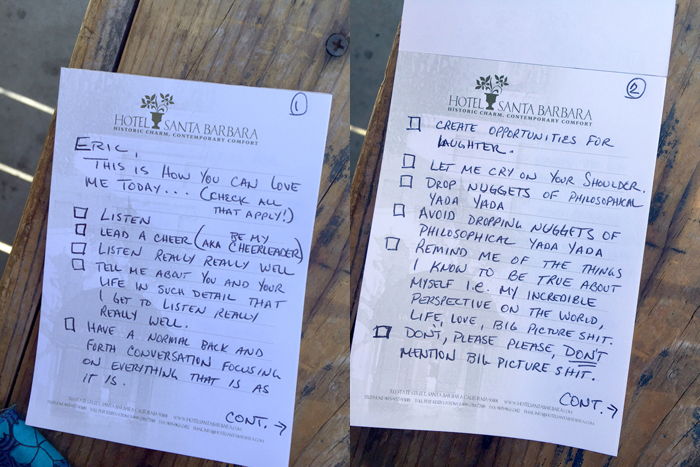 1
HOTEL SANTA BARBARA
HISTORIC CHARM, CONTEMPORARY COMFORT
ERIC,
THIS IS HOW YOU CAN LOVE
ME TODAY... (CHECK ALL
THAT APPLY!)
LISTEN
LEAD A CHEER (AKA BE MY CHEERLEADER)
LISTEN REALLY REALLY WELL
TELL ME ABOUT YOU AND YOUR
LIFE IN SUCH DETAIL THAT
I GET TO LISTEN REALLY
REALLY WELL.
HAVE A NORMAL BACK AND
FORTH CONVERSATION FOCUSING
ON EVERYTHING THAT IS AS
IT IS.
CONT. →
2
HOTEL SANTA BARBARA
HISTORIC CHARM, CONTEMPORARY COMFORT
CREATE OPPORTUNITIES FOR
LAUGHTER.
LET ME CRY ON YOUR SHOULDER.
DROP NUGGETS OF PHILOSOPHICAL
YADA YADA
AVOID DROPPING NUGGETS OF
PHILOSOPHICAL YADA YADA
REMIND ME OF THE THINGS
I KNOW TO BE TRUE ABOUT
MYSELF I.E. MY INCREDIBLE
PERSPECTIVE ON THE WORLD,
LIFE, LOVE, BIG PICTURE SHIT.
DON'T, PLEASE PLEASE, DON'T
MENTION BIG PICTURE SHIT.
CONT. →